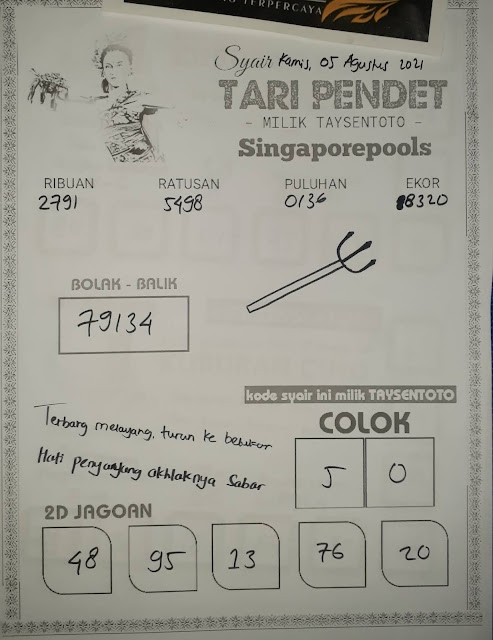 TERPERCAYA
Syair Kamis, 05 Agustus 2021
TARI PENDET
- MILIK TAYSENTOTO -
Singaporepools
RIBUAN RATUSAN PULUHAN EKOR
2791 5498 0136 8320
BOLAK - BALIK
79134
kode syair ini milik TAYSENTOTO
COLOK
5 0
Terbang melayang, turun ke
Hati penyanjung akhlaknya Sabar
2D JAGOAN
48 95 13 76 20